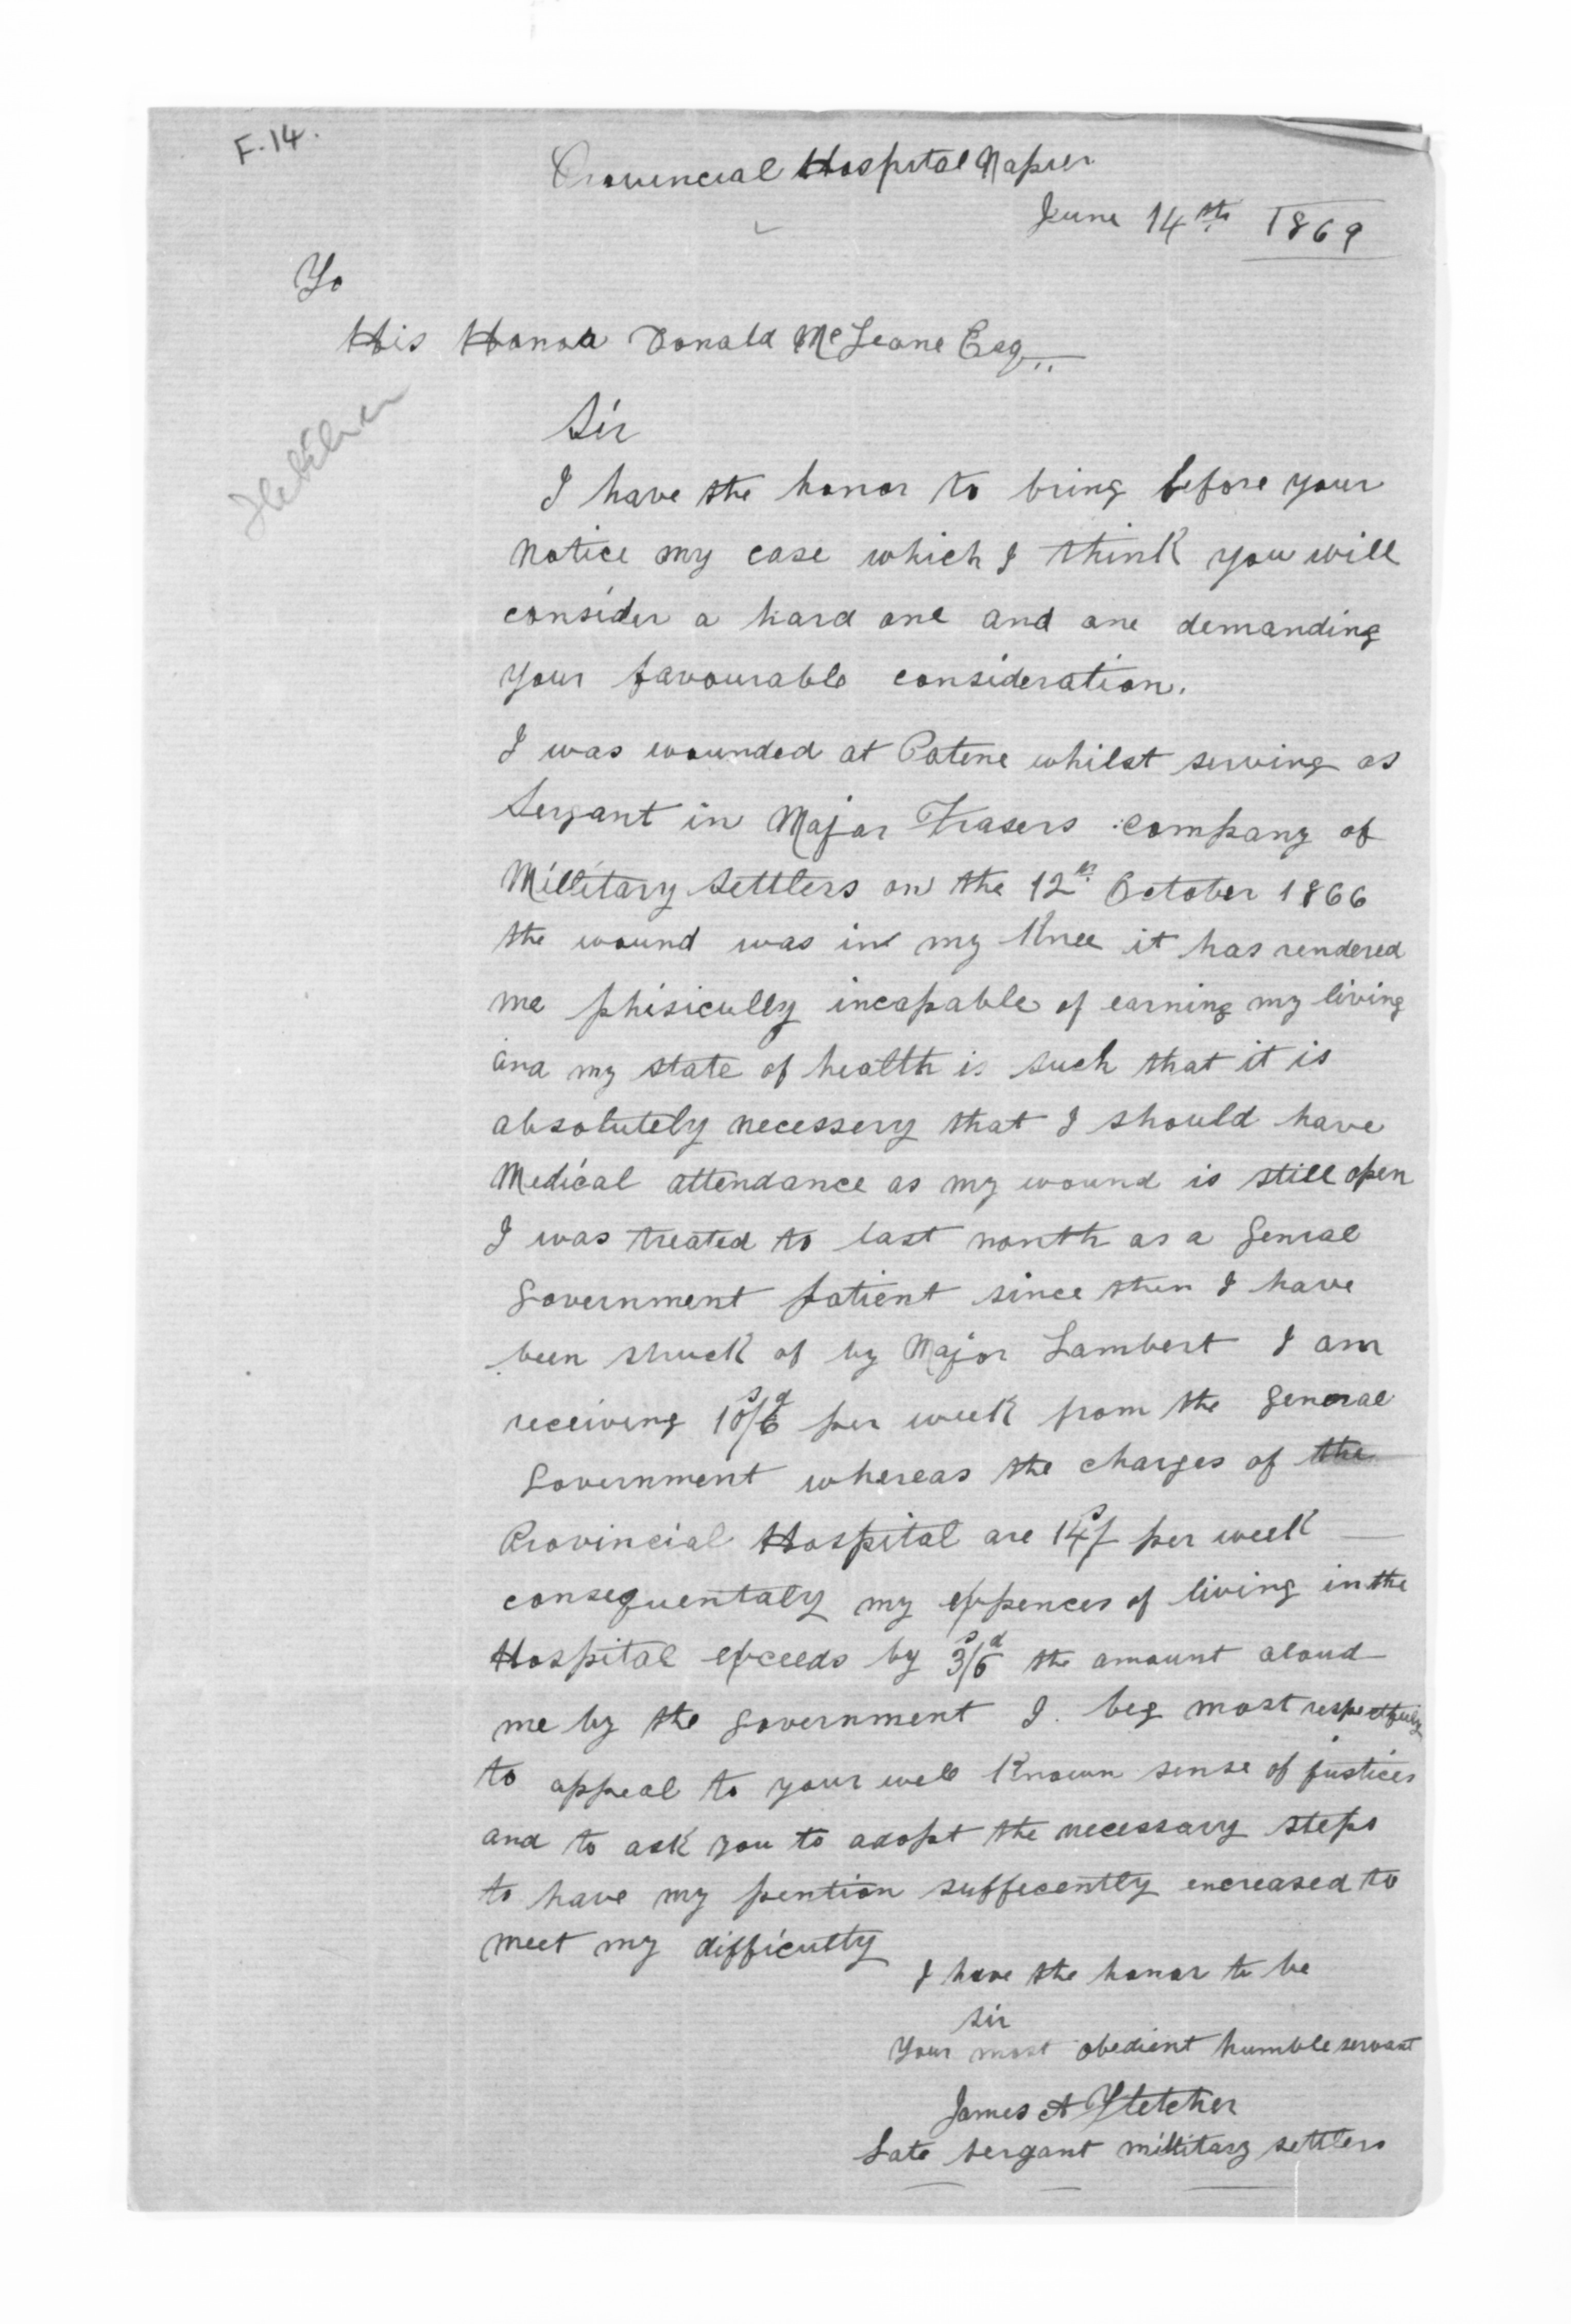 F. 14.
Provincial Hospital Napier
June 14th 1869
To
His Honor Donald McLeane Esq
Fletcher
Sir
I have the honor to bring before your
notice my case which I think you will
consider a hard one and one demanding
your favourable consideration.
I was wounded at Patene whilst serving as
Sergant in Major Frasers company of
Millitary Settlers on the 12th October 1866
the wound was in my Knee it has rendered
me phisicully incapable of earning my living
and my state of health is such that it is
absolutely necessery that I should have
Medical attendance as my wound is still open
I was treated to last month as a Genral
Government patient since then I have
been struck of by Major Lambert I am
receiving 10s/6d per week from the General
Government whereas the charges of the
Provincial Hospital are 14s/ per week
consequentaly my expences of living in the
Hospital exceeds by 3s/6d the amount aloud
me by the Government I beg most respectfuly
to appeal to your well Known sense of justices
and to ask you to adopt the necessary steps
to have my pention suffecently encreased to
meet my difficulty
I have the honor to be
Sir
Your most obedient humble servant
James A Fletcher
Late Sergant millitary settlers